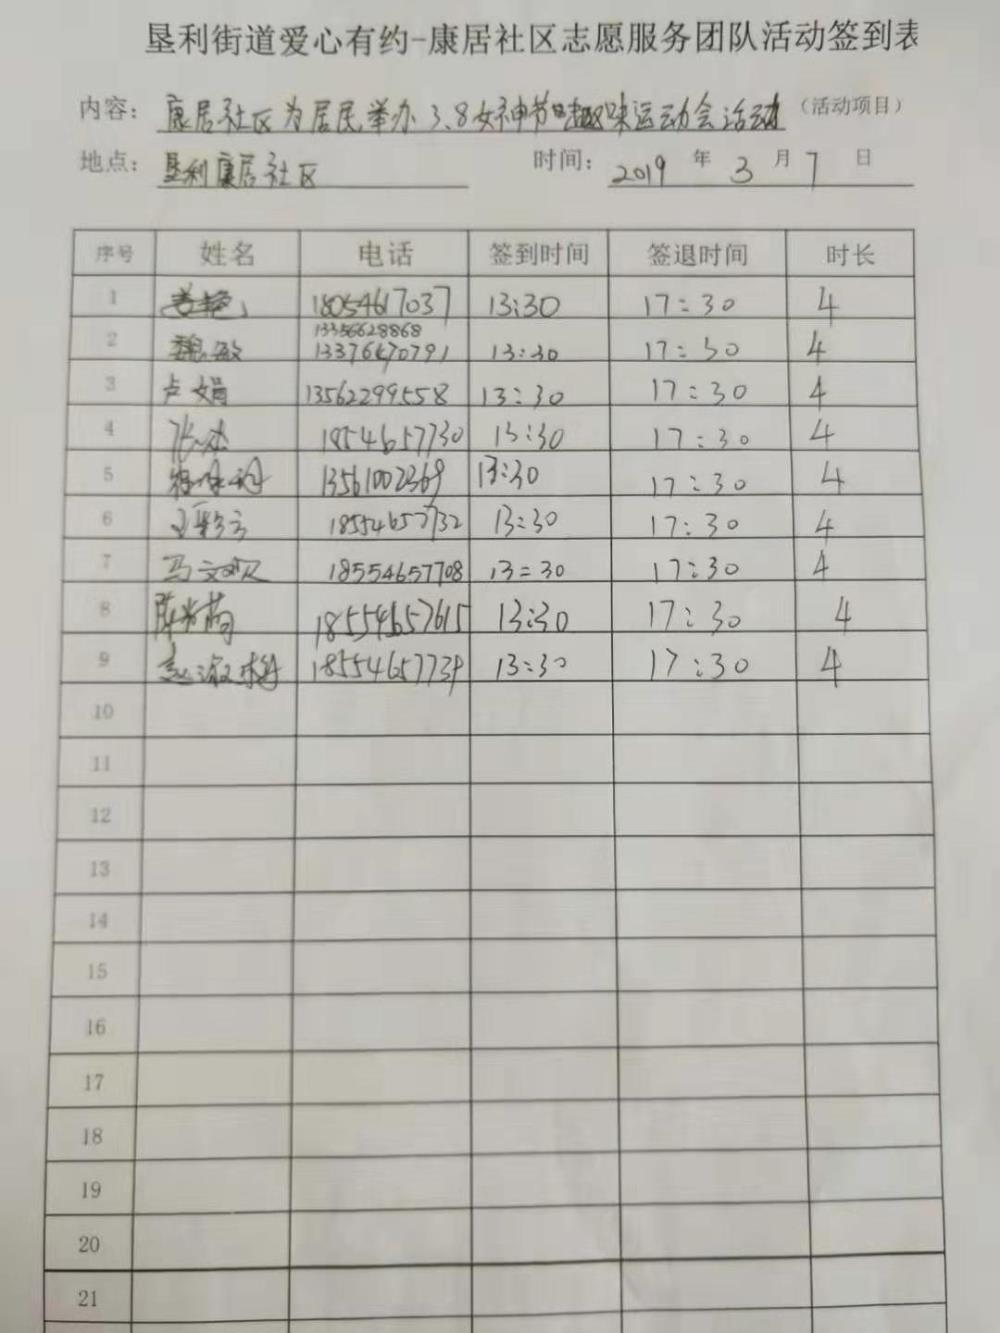 垦利街道爱心有约-康居社区志愿服务团队活动签到表
内容：康居社区为居民举办3.8女神节趣味运动会活动（活动项目）
地点：垦利康居社区 时间：2019年3月7日
序号 姓名 电话 签到时间 签退时间 时长
1 18054617037 13:30 17:30 4
13356628868
2 魏敏 13376470791 13:30 17:30 4
3 卢娟 13562299558 13:30 17:30 4
4 张杰 1854657730 13:30 17:30 4
5 13561002369 13:30 17:30 4
6 18554657732 13:30 17:30 4
7 马文欢 18554657708 13:30 17:30 4
8 18554657615 13:30 17:30 4
9 18554657739 13:30 17:30 4
10
11
12
13
14
15
16
17
18
19
20
21